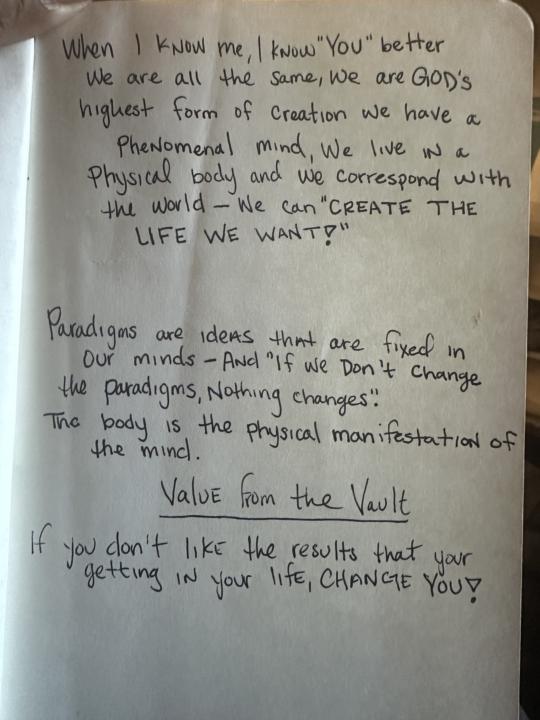 When I know me, I know "You" better
We are all the same, We are GOD's
highest form of Creation we have a
Phenomenal mind, We live IN a
Physical body and we correspond with
the world - We can "CREATE THE
LIFE WE WANT!"
Paradigms are ideas that are fixed in
our minds - And "If we Don't change
the paradigms, Nothing changes".
The body is the physical manifestation of
the mind.
Value from the Vault
If you don't like the results that your
getting IN your life, CHANGE YOU!